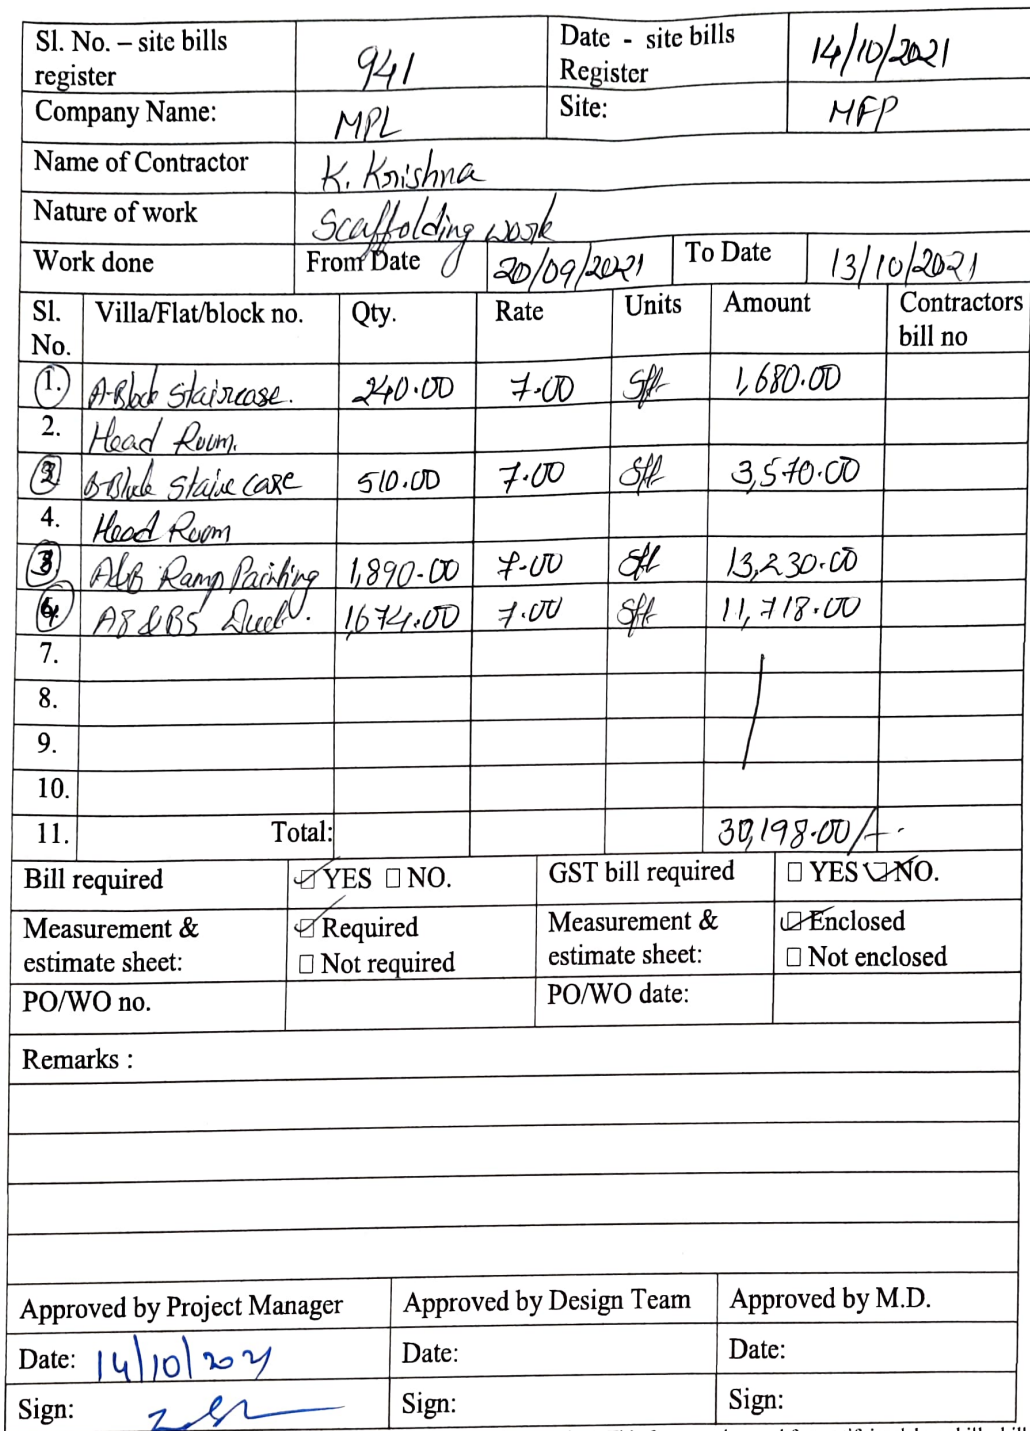 Sl. No. – site bills register 941 Date - site bills Register 14/10/2021
Company Name: MPL Site: MFP
Name of Contractor K. Krishna
Nature of work Scaffolding work
Work done From Date 20/09/2021 To Date 13/10/2021
Sl. No. Villa/Flat/block no. Qty. Rate Units Amount Contractors bill no
1. A-Block Staircase. 240.00 7.00 Sft 1,680.00
2. Head Room.
2 B-Block Staire case 510.00 7.00 Sft 3,570.00
4. Head Room
3 A&B Ramp Painting 1,890.00 7.00 Sft 13,230.00
4 A8 & B5 Duct. 1,674.00 7.00 Sft 11,718.00
7.
8.
9.
10.
11. Total: 30,198.00/-
Bill required ☑ YES ☐ NO. GST bill required ☐ YES ☑ NO.
Measurement & estimate sheet: ☑ Required Measurement & estimate sheet: ☑ Enclosed
☐ Not required ☐ Not enclosed
PO/WO no. PO/WO date:
Remarks :
Approved by Project Manager Approved by Design Team Approved by M.D.
Date: 14/10/2021 Date: Date:
Sign: Sign: Sign: